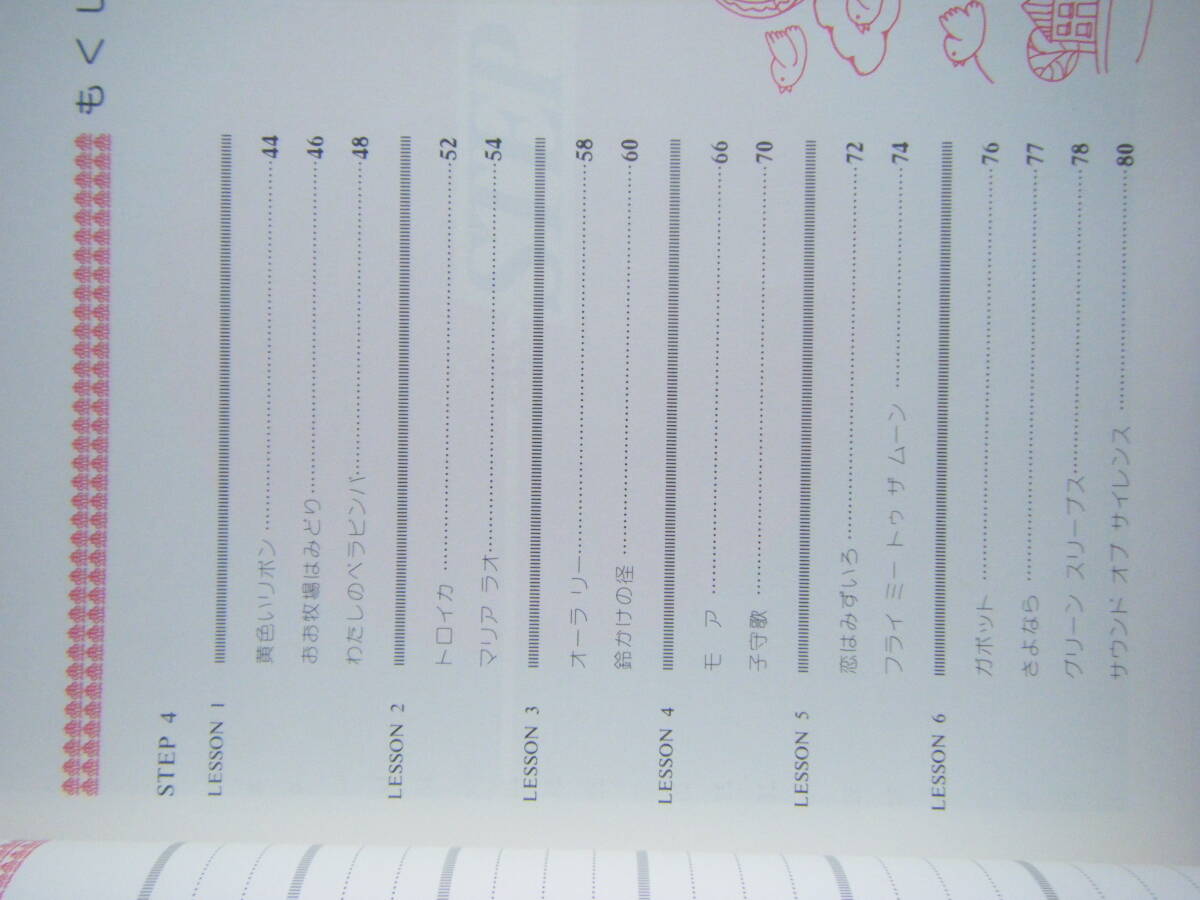 もくじ
STEP 4
LESSON 1
黄色いリボン……44
おお牧場はみどり……46
わたしのベラビンバ……48
LESSON 2
トロイカ……52
マリア ラオ……54
LESSON 3
オーラ リー……58
鈴かけの径……60
LESSON 4
モ ア……66
子守歌……70
LESSON 5
恋はみずいろ……72
フライ ミー トゥ ザ ムーン……74
LESSON 6
ガボット……76
さよなら……77
グリーン スリーブス……78
サウンド オブ サイレンス……80